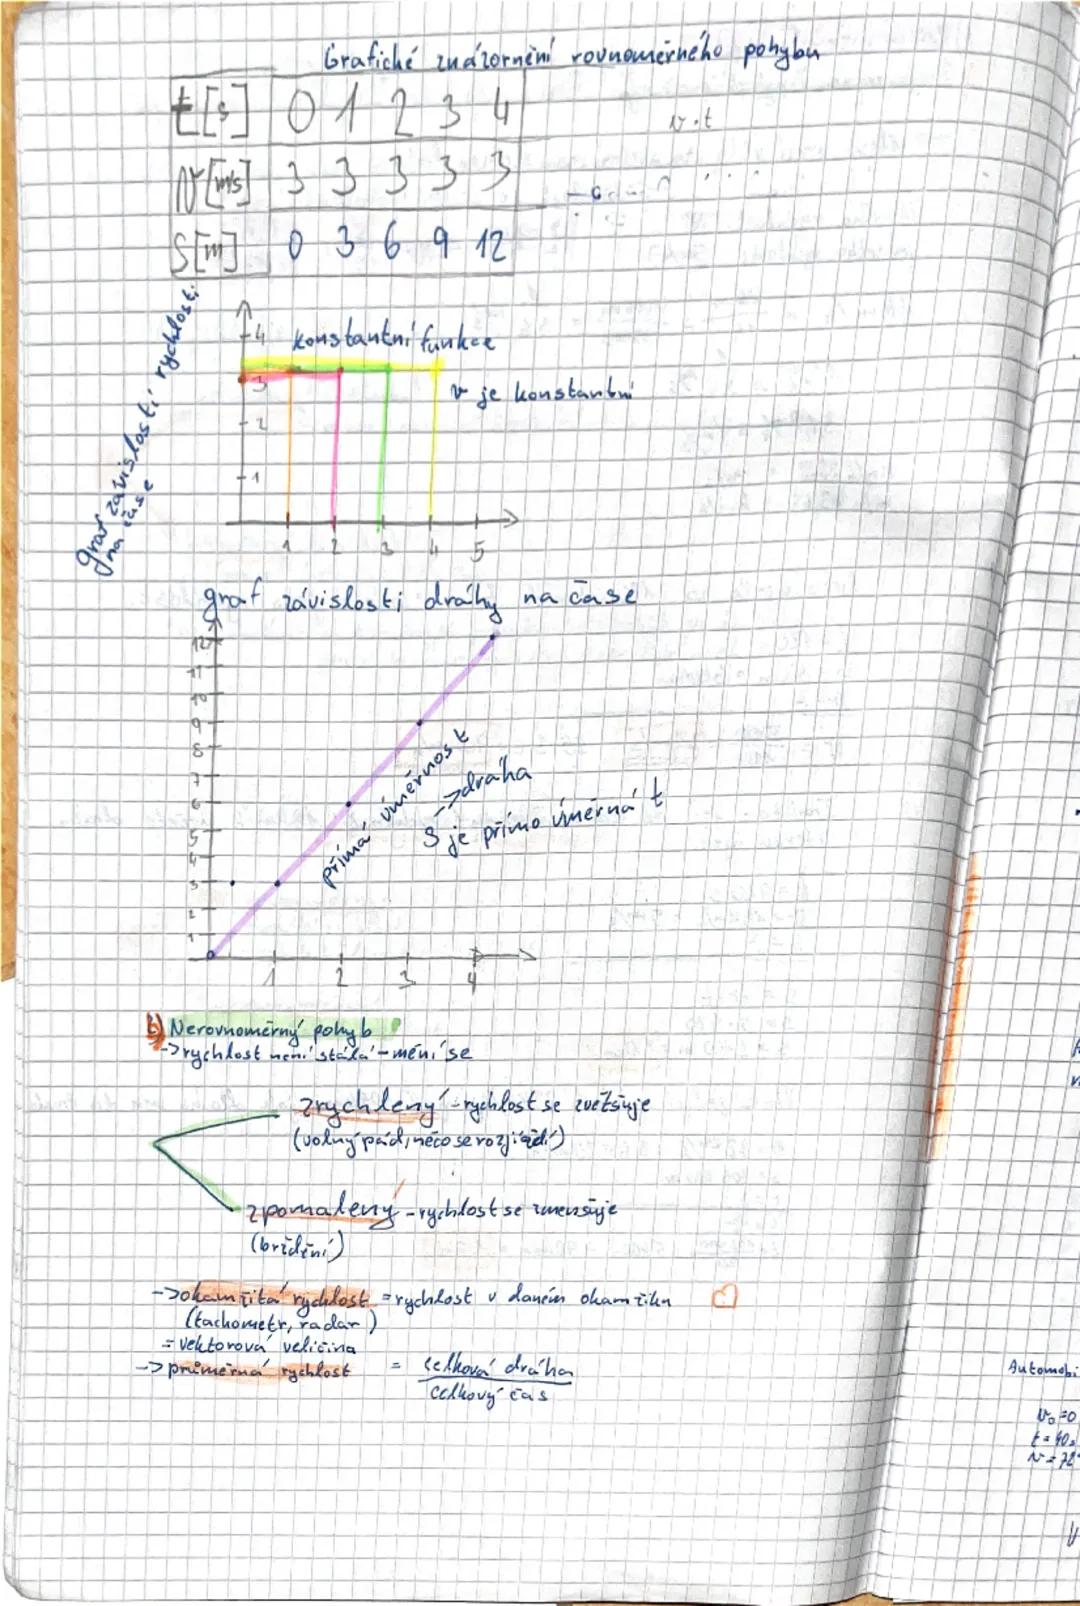 Grafické znázornění rovnoměrného pohybu
t[s] 0 1 2 3 4
v·t
v[m/s] 3 3 3 3 3
s[m] 0 3 6 9 12
graf závislosti rychlosti
na čase
4
konstantní funkce
3
v je konstantní
2
1
1 2 3 4 5
graf závislosti dráhy na čase
12
11
10
9
8
7
6
5
4
3
2
1
přímá úměrnost
->dráha
s je přímo úměrná t
1 2 3 4
b) Nerovnoměrný pohyb
->rychlost není stálá - mění se
zrychlený - rychlost se zvětšuje
(volný pád, něco se rozjíždí)
zpomalený - rychlost se zmenšuje
(brždění)
->okamžitá rychlost = rychlost v daném okamžiku
(tachometr, radar)
= vektorová veličina
->průměrná rychlost = celková dráha
celkový čas
Automobi
v₀=0
t=40s
v=72